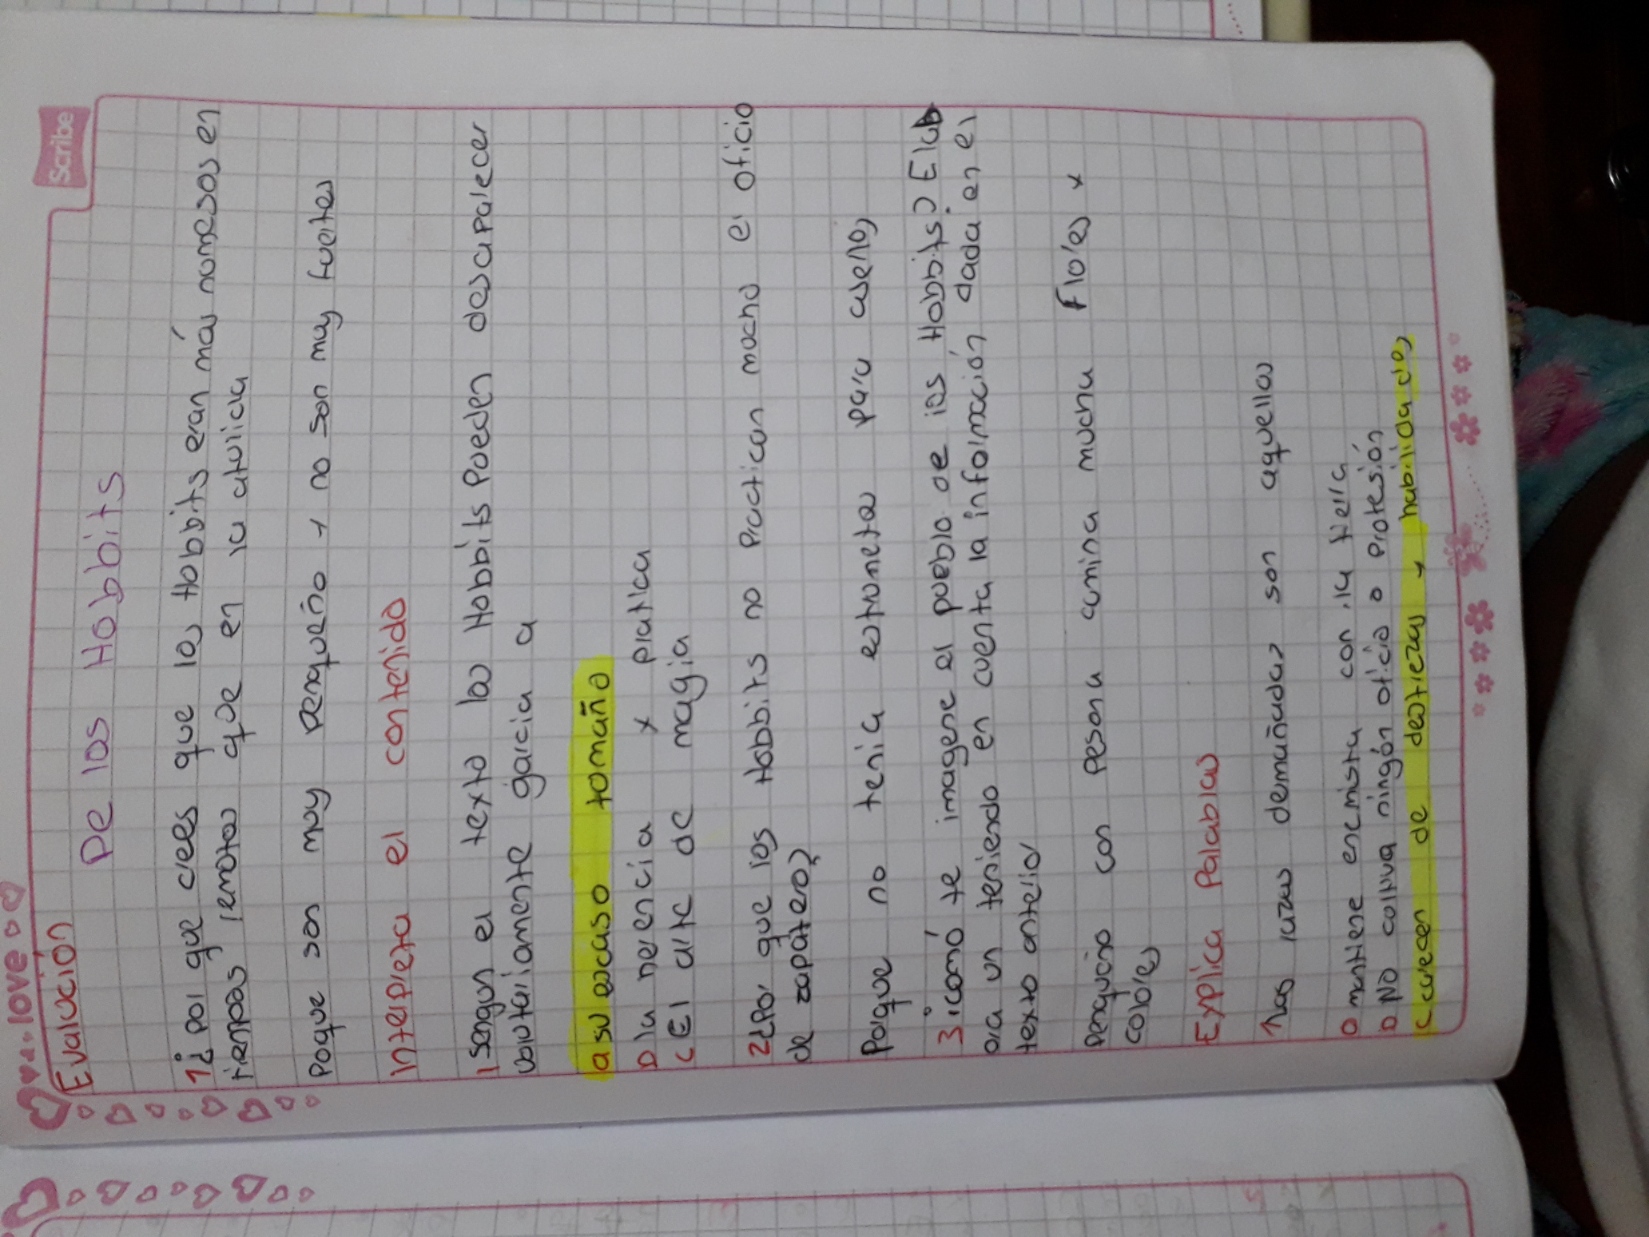 Scribe
love
Evalución
De los Hobbits
1¿Por que crees que los Hobbits eran más nomesos en
tiempos remotos que en la atulicia
Poque son muy Penqueño y no son muy fueites
Interpieta el contenido
1 sengun el texto los Hobbits Pueden desapalecer
volutariamente garcia a
a su escaso tomaño
b la herencia y platica
c El alte de magia
2¿Por que los Hobbits no Practican mocho el oficio
de zapatero?
Polque no tenia estrometos para aserlo,
3 ¿comó te imagene el pueblo de los Hobbits? Elab
ora un teniendo en cuenta la información dada en el
texto antelio
Penqueño con pesona camina mucha Flores y
colores
Explica Palablas
1 las razas demañadas son aquellas
a mantiene enemista con la tiella
b No coltiva ningún oficio o Profesión
c carecen de destrezas y habilidades